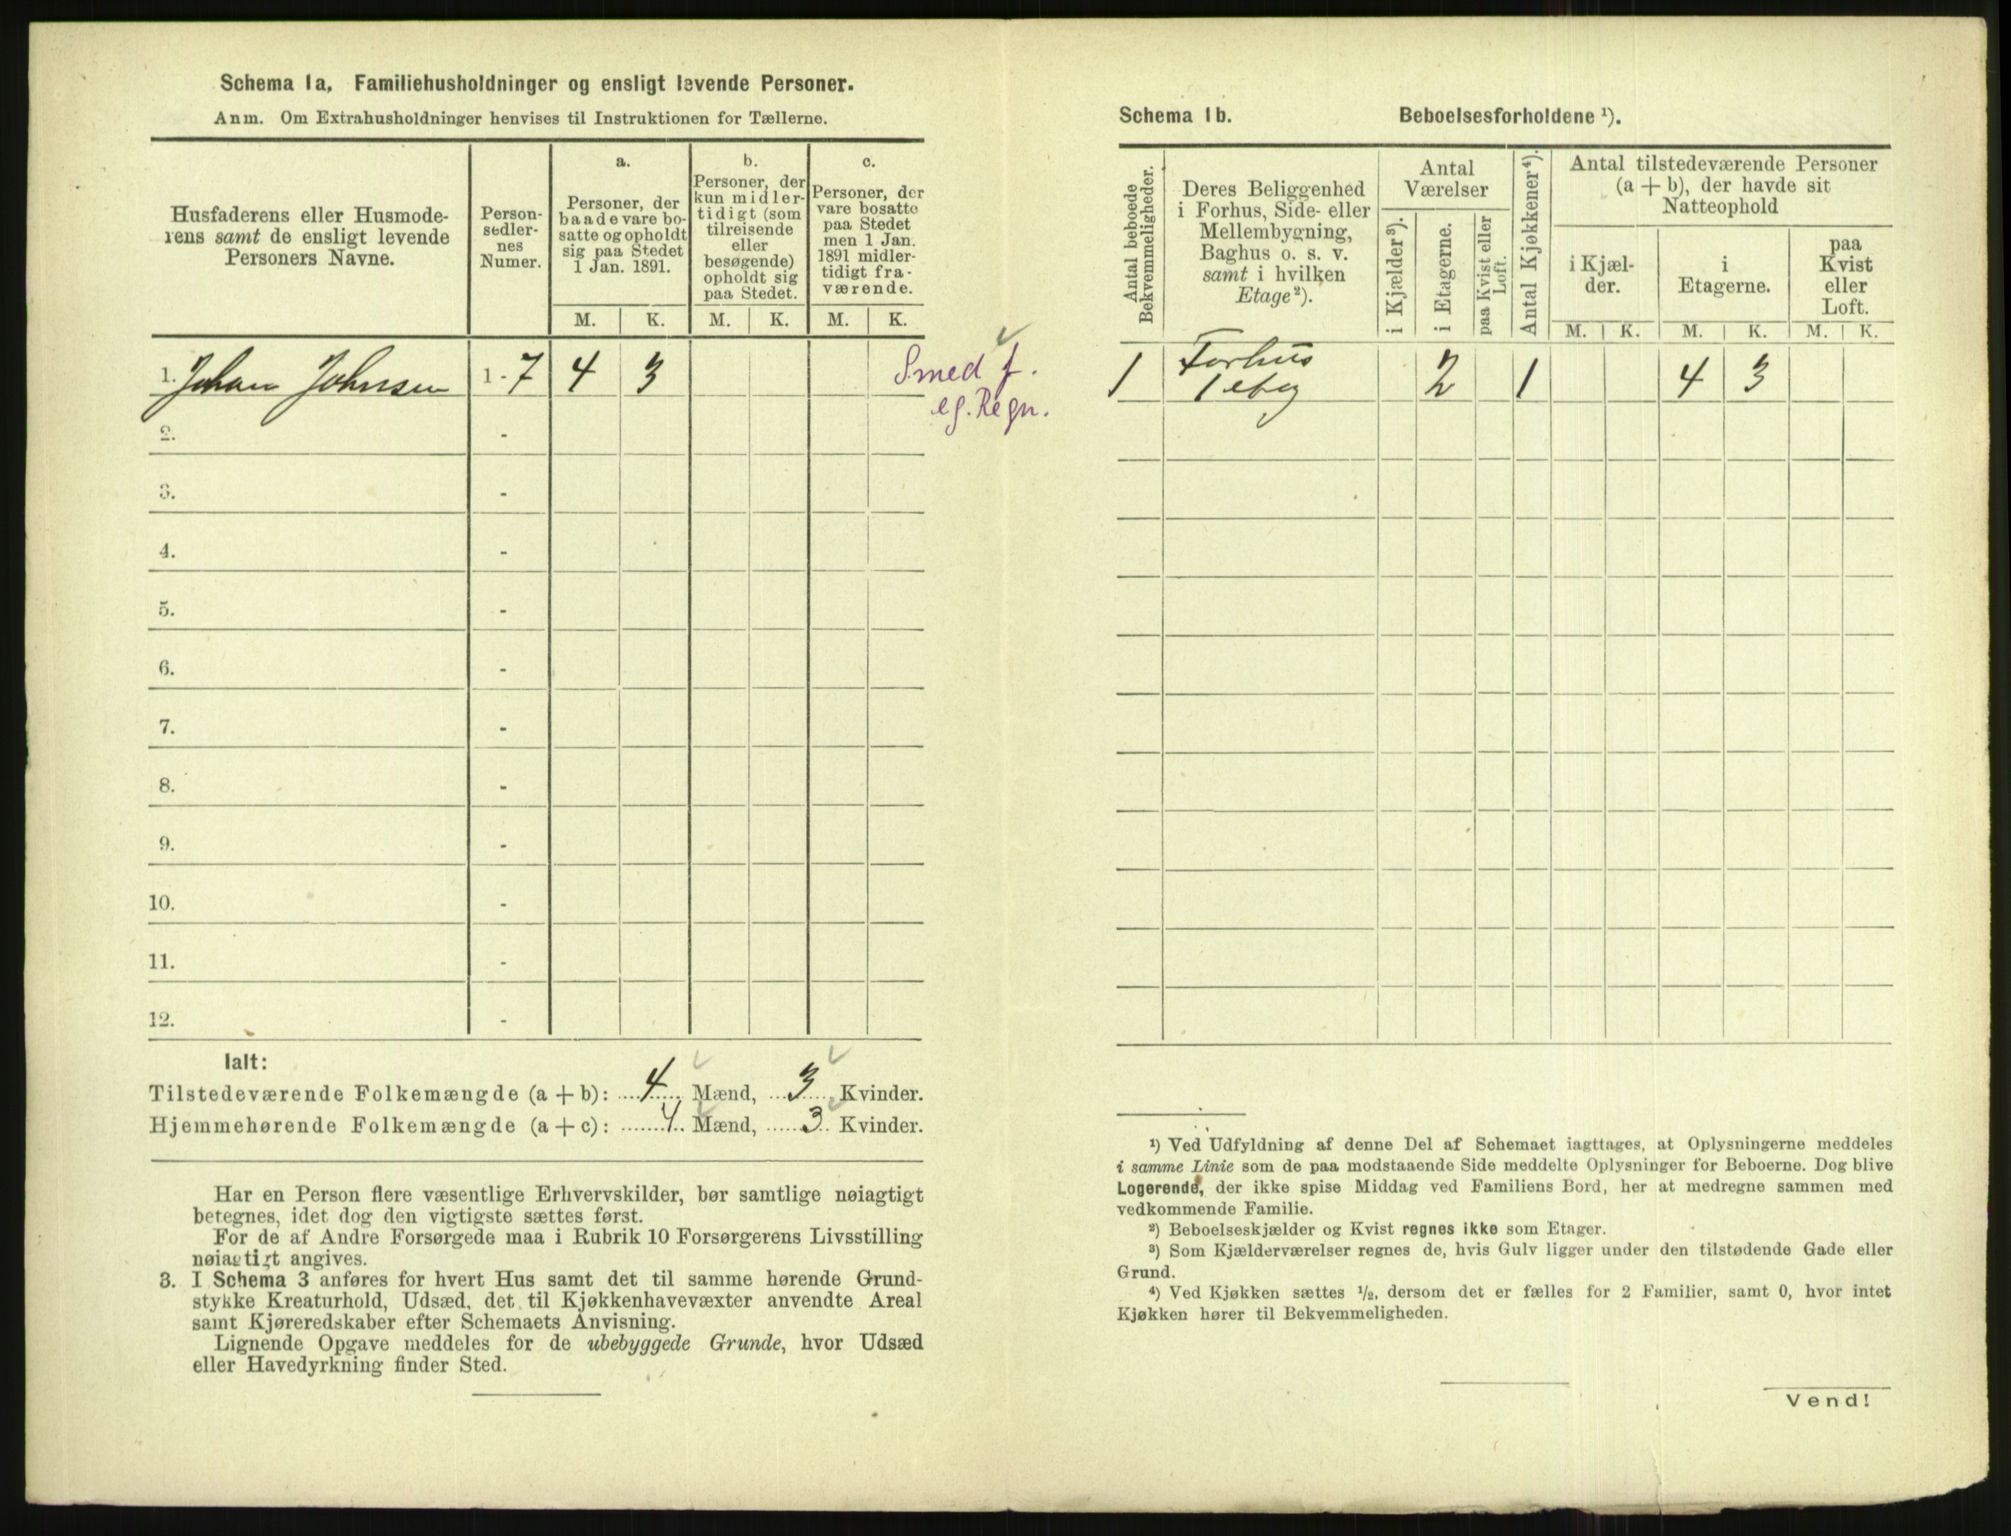 Schema 1a. Familiehusholdninger og ensligt levende Personer.
Anm. Om Extrahusholdninger henvises til Instruktionen for Tællerne.
Husfaderens eller Husmode-
rens samt de ensligt levende
Personers Navne.
Person-
sedler-
nes
Numer.
a.
Personer, der
baade vare bo-
satte og opholdt
sig paa Stedet
1 Jan. 1891.
M. K.
b.
Personer, der
kun midler-
tidigt (som
tilreisende
eller
besøgende)
opholdt sig
paa Stedet.
M. K.
c.
Personer, der
vare bosatte
paa Stedet
men 1 Jan.
1891 midler-
tidigt fra-
værende.
M. K.
1. Johan Johnsen 1 - 7 4 3
Smed f.
eg. Regn.
2. -
3. -
4. -
5. -
6. -
7. -
8. -
9. -
10. -
11. -
12. -
Ialt:
Tilstedeværende Folkemængde (a + b): 4 Mænd, 3 Kvinder.
Hjemmehørende Folkemængde (a + c): 4 Mænd, 3 Kvinder.
Har en Person flere væsentlige Erhvervskilder, bør samtlige nøiagtigt
betegnes, idet dog den vigtigste sættes først.
For de af Andre Forsørgede maa i Rubrik 10 Forsørgerens Livsstilling
nøiagtigt angives.
3. I Schema 3 anføres for hvert Hus samt det til samme hørende Grund-
stykke Kreaturhold, Udsæd, det til Kjøkkenhavevæxter anvendte Areal
samt Kjøreredskaber efter Schemaets Anvisning.
Lignende Opgave meddeles for de ubebyggede Grunde, hvor Udsæd
eller Havedyrkning finder Sted.
Schema 1b. Beboelsesforholdene ¹).
Antal beboede
Bekvemmeligheder.
Deres Beliggenhed
i Forhus, Side- eller
Mellembygning,
Baghus o. s. v.
samt i hvilken
Etage²).
Antal
Værelser
i Kjælder³).
i Etagerne.
paa Kvist eller
Loft.
Antal Kjøkkener⁴).
Antal tilstedeværende Personer
(a + b), der havde sit
Natteophold
i Kjæl-
der.
i
Etagerne.
paa
Kvist
eller
Loft.
M. K. M. K. M. K.
1 Forhus 2 1 4 3
1 etag
¹) Ved Udfyldning af denne Del af Schemaet iagttages, at Oplysningerne meddeles
i samme Linie som de paa modstaaende Side meddelte Oplysninger for Beboerne. Dog blive
Logerende, der ikke spise Middag ved Familiens Bord, her at medregne sammen med
vedkommende Familie.
²) Beboelseskjælder og Kvist regnes ikke som Etager.
³) Som Kjælderværelser regnes de, hvis Gulv ligger under den tilstødende Gade eller
Grund.
⁴) Ved Kjøkken sættes ½, dersom det er fælles for 2 Familier, samt 0, hvor intet
Kjøkken hører til Bekvemmeligheden.
Vend!